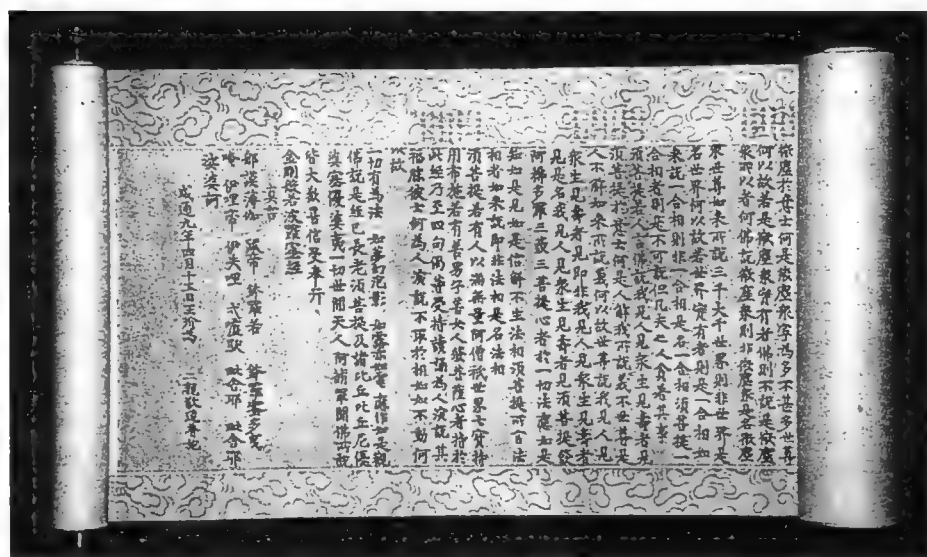 微塵於意云何是微塵衆寧為多不甚多世尊
何以故若是微塵衆實有者佛則不說是微塵
衆所以者何佛說微塵衆則非微塵衆是名微塵
衆世尊如來所說三千大千世界則非世界是
名世界何以故若世界實有者則是一合相如
來說一合相則非一合相是名一合相須菩提一
合相者則是不可說但凡夫之人貪著其事
須菩提若人言佛說我見人見衆生見壽者見
須菩提於意云何是人解我所說義不世尊是
人不解如來所說義何以故世尊說我見人見
衆生見壽者見即非我見人見衆生見壽者
見是名我見人見衆生見壽者見須菩提發
阿耨多羅三藐三菩提心者於一切法應如是
知如是見如是信解不生法相須菩提所言法
相者如來說即非法相是名法相
須菩提若有人以滿無量阿僧祇世界七寶持
用布施若有善男子善女人發菩薩心者持於
此經乃至四句偈等受持讀誦為人演說其
福勝彼云何為人演說不取於相如如不動何
以故
一切有為法 如夢幻泡影 如露亦如電 應作如是觀
佛說是經已長老須菩提及諸比丘比丘尼優
婆塞優婆夷一切世間天人阿脩羅聞佛所說
皆大歡喜信受奉行
金剛般若波羅蜜經
真言
那謨薄伽 跋帝 鉢羅若 鉢羅蜜多曳
唵 伊理帝 伊失理 戍盧馱 毗舍耶 毗舍耶
娑婆訶
咸通九年四月十五日王玠為 二親敬造普施